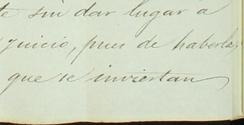 te sin dar lugar á
juicio, pues de haberlo,
que se inviertan